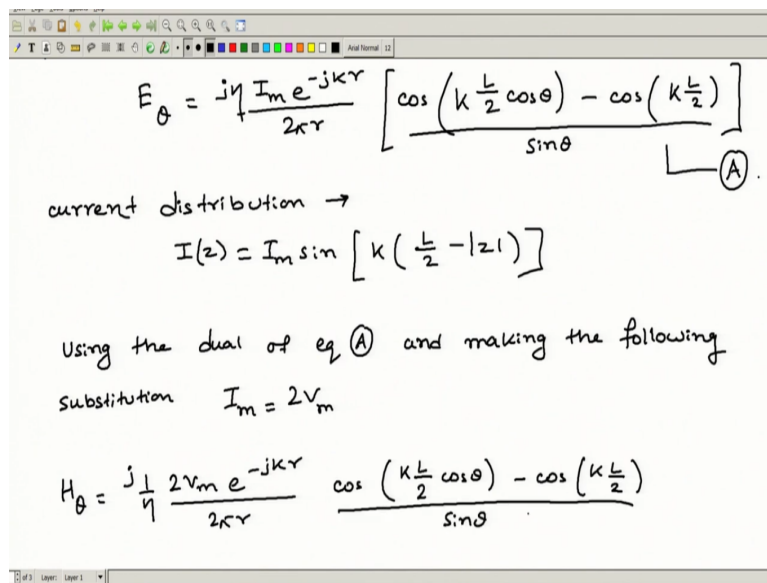 Arial Normal 12
E_θ = jη I_m e^{-jkr} / 2πr [ cos (k L/2 cosθ) - cos (k L/2) / sinθ ]
(A).
current distribution →
I(z) = I_m sin [ k ( L/2 - |z| ) ]
Using the dual of eq (A) and making the following
substitution I_m = 2V_m
H_θ = j 1/η 2V_m e^{-jkr} / 2πr cos (k L/2 cosθ) - cos (k L/2) / sinθ
of 3 Layer: Layer 1